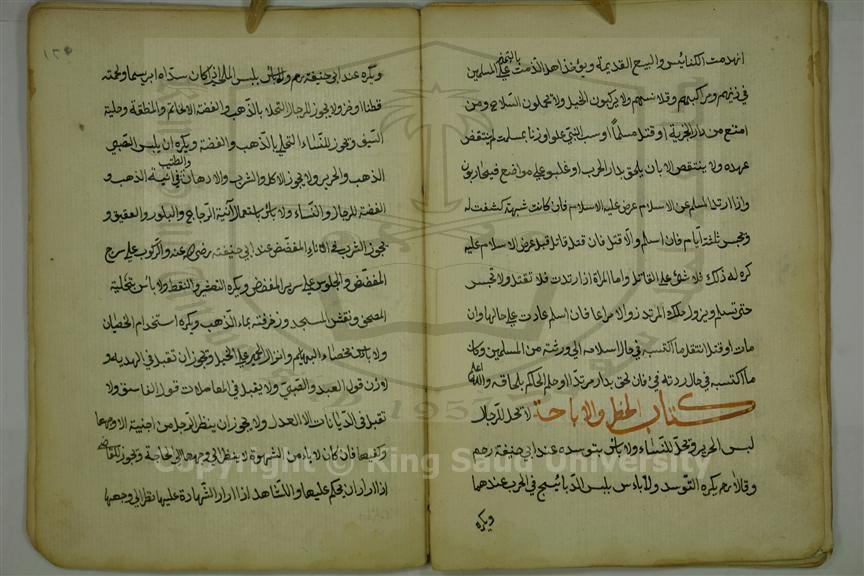 انهدمت الكنائيس والبيع القديمة ويؤخذ اهل الذمت بالتميز علي المسلمين
في زيهم ومراكبهم وقلانسهم ولا يركبون الخيل ولا يحملون السلاح ومن
امتنع من دار الجزية او قتل مسلما او سب النبي علم اوزنا بمسلمت لم ينتقض
عهده ولا ينتقص الا بان يلحق بدار الحرب او غلبو علي مواضع فيحاربون
واذا ارتد المسلم عن الاسلام عرض عليه الاسلام فان كانت شبهة كشفت له
ويحبس ثلثة ايام فان اسلم والا قتل فان قتل قاتل قبل عرض الاسلام عليه
كره له ذلك فلا شئ علي القاتل واما المراة اذا ارتدت فلا تقتل ولا تحبس
حتي تسلم ويزول ملك المرتد زوالا مراعا فان اسلم عادت علي حالها وان
مات او قتل انتقل ما اكتسبه في حال اسلامه الي ورثته من المسلمين وكان
ما اكتسبه في حال ردته فئ فان لحق بدار مرتدا وحكم الحاكم بلحاقه والله اعلم
كتاب الحظر والاباحة لا تحل للرجال
لبس الحرير وتحل للنساء ولا باس بتوسده عند ابي حنيفة رحم
وقالا رحم يكره التوسد ولا باس بلبس الديباج في الحرب عندهما
ويكره
ويكره عند ابي حنيفة رح ولا باس بلبس الملحم اذا كان سداه ابريسما ولحمته
قطنا او خز ولا يجوز للرجال التحلي بالذهب والفضة الا الخاتم والمنطقة وحلية
السيف ويجوز للنساء التحلي بالذهب والفضة ويكره ان يلبس الصبي
الذهب والحرير ولا يجوز الاكل والشرب والادهان والطيب في آنية الذهب و
الفضة للرجال والنساء ولا باس باستعمال آنية الزجاج والبلور والعقيق و
يجوز الشرب في الاناء المفضض عند ابي حنيفة رضي الله عنه والركوب علي سرج
المفضض والجلوس علي سرير المفضض ويكره التعشير والنقط ولا باس بتحلية
المصحف ونقش المسجد وزخرفته بماء الذهب ويكره استخدام الخصيان
ولا باس بخصاء البهايم وانزا الحمير علي الخيل ويجوز ان تقبل في الهدية و
الاذن قول العبد والصبي ولا يقبل في المعاملات قول الفاسق ولا
تقبل في الديانات الا العدل ولا يجوز ان ينظر الرجل من اجنبية الا وجهها
وكفيها فان كان لا يامن الشهوة لا ينظر الي وجهها الي الحاجة ويجوز للقاضي
اذا اراد ان يحكم عليها وللشاهد اذا اراد الشهادة عليها نظر الي وجهها
1957
Copyright © King Saud University